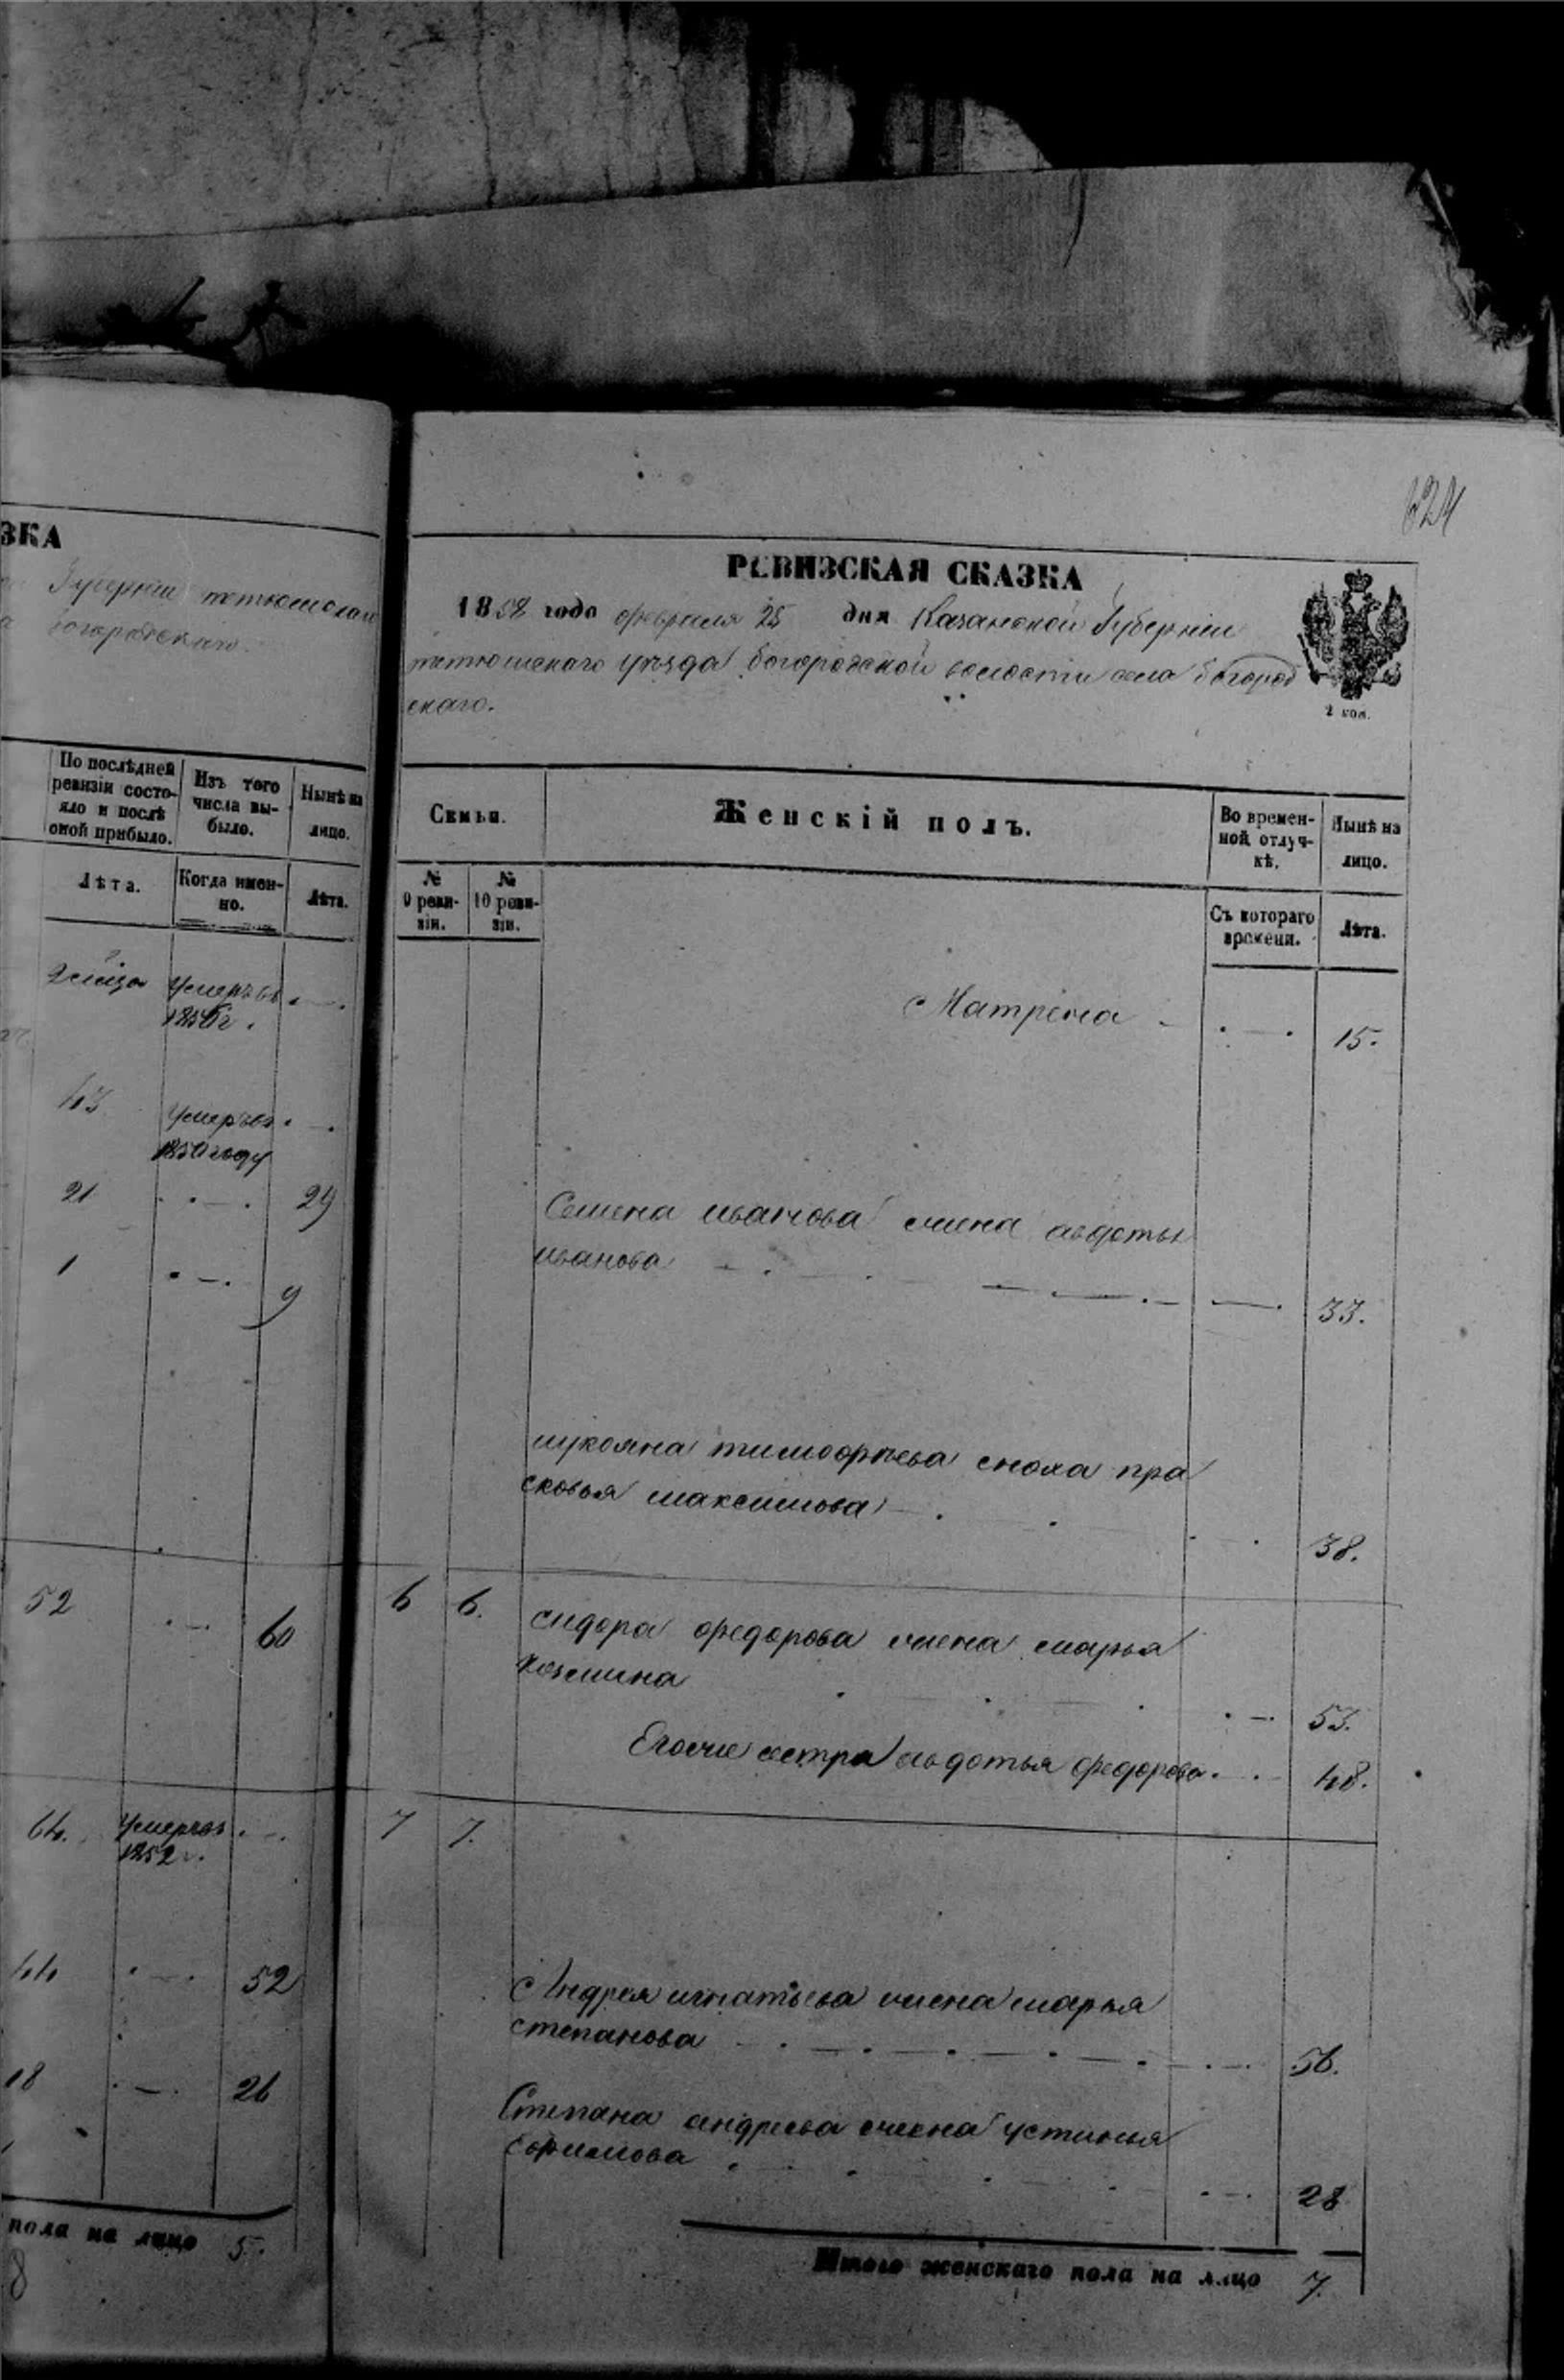 ЗКА
Губерніи тетюшскаго
Богородскаго.
По послѣдней
ревизіи состо-
яло и послѣ
оной прибыло.
Изъ того
числа вы-
было.
Нынѣ на
лицо.
Лѣта.
Когда имен-
но.
Лѣта.
умеръ въ
185 г.
43
умеръ въ
1850 году
21 29
1 9
52 60
64. умеръ въ
1852 г.
44 52
18 26
1
пола на лицо 5.
8
624
РЕВИЗСКАЯ СКАЗКА
1858 года февраля 25 дня Казанской Губерніи
тетюшскаго уѣзда богородской волости села богород
скаго.
2 коп.
Семьи.
Женскій полъ.
Во времен-
ной отлуч-
кѣ.
Нынѣ на
лицо.
№
9 реви-
зіи.
№
10 реви-
зіи.
Съ котораго
времени.
Лѣта.
Матрена 15.
Семена иванова жена авдотья
иванова 33.
лукояна тимофѣева сноха пра
сковья максимова 38.
6 6. сидора федорова жена марья
козмина 53.
Егоже сестра авдотья федорова 48.
7 7.
Андрея игнатьева жена марья
степанова 56.
Степана андреева жена устинья
Ефимова 28
Итого женскаго пола на лицо 7.